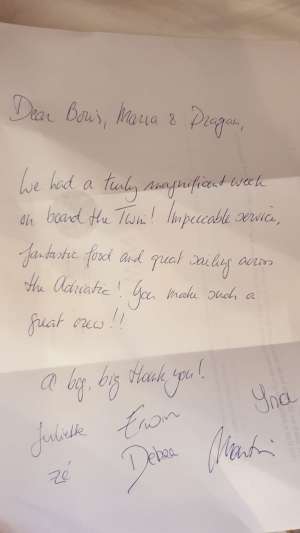 Dear Boris, Maria & Dragan,
We had a truly magnificent week
on board the Twin! Impeccable service,
fantastic food and great sailing across
the Adriatic! You make such a
great crew!!
A big, big thank you!
Juliette Erwin Yna
Zé Debea Martin